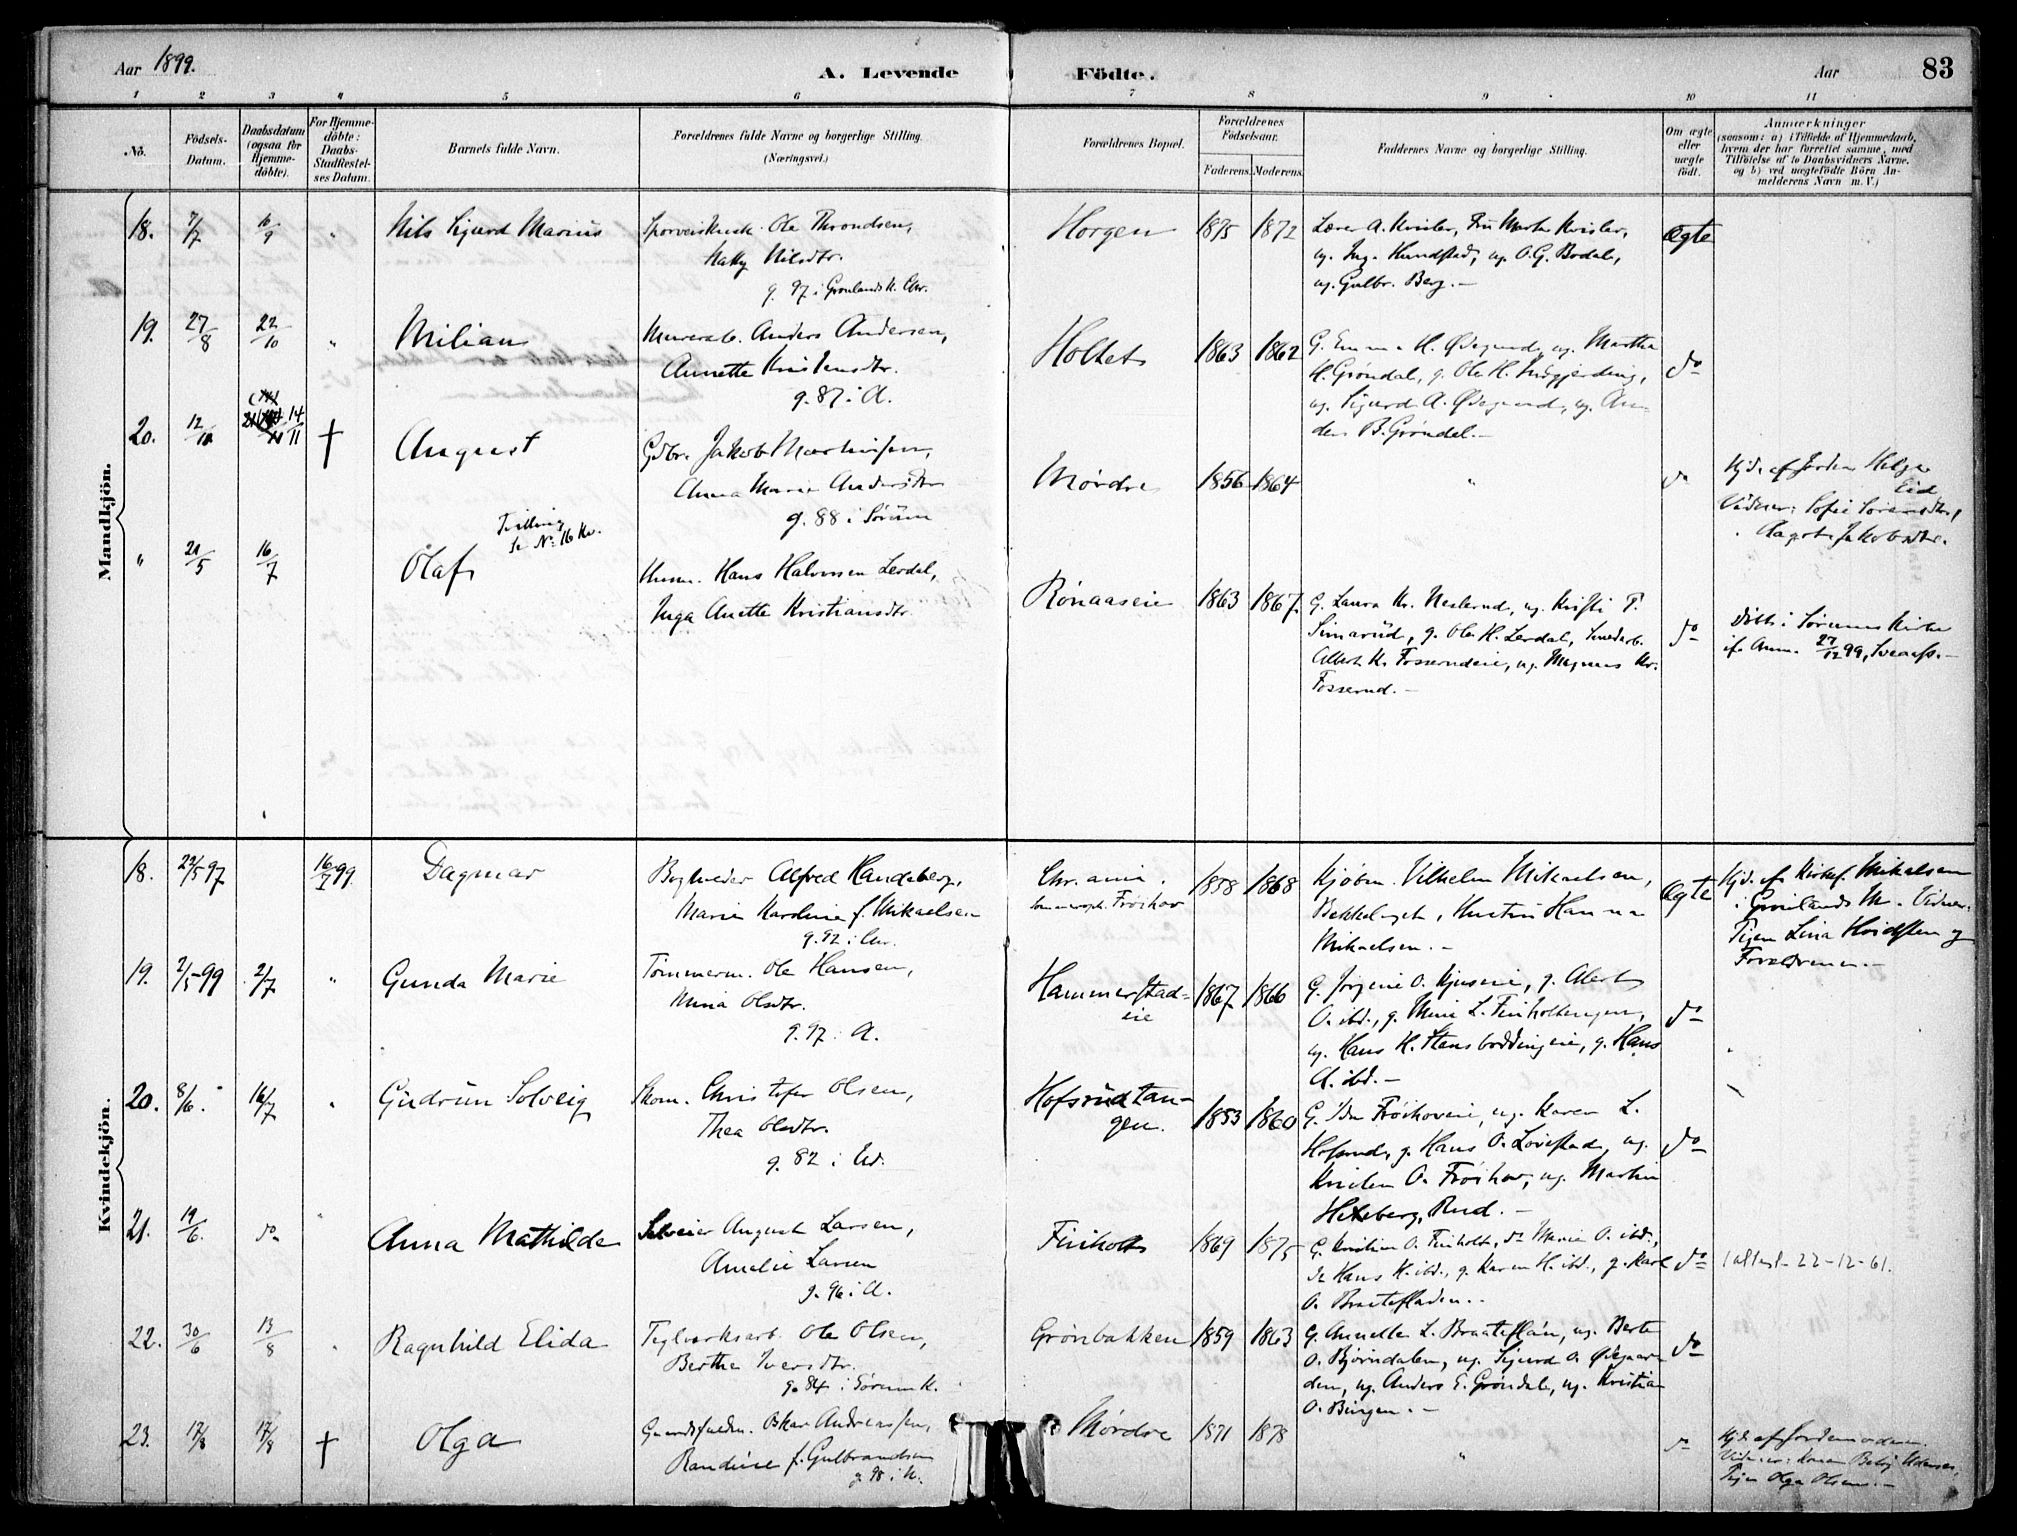 Aar 1899.
A. Levende
Födte.
Aar
83
1 2 3 4 5 6 7 8 9 10 11
No.
Födsels-Datum.
Daabsdatum (ogsaa for Hjemme-döbte).
For Hjemme-döbte: Daabs-Stadfæstel-ses Datum.
Barnets fulde Navn.
Forældrenes fulde Navne og borgerlige Stilling. (Næringsvei.)
Forældrenes Bopæl.
Forældrenes Födselsaar.
Faderens. Moderens.
Faddernes Navne og borgerlige Stilling.
Om ægte eller uægte födt.
Anmærkninger
(saasom: a) i Tilfælde af Hjemmedaab, hvem der har forrettet samme, med Tilföielse af to Daabsvidners Navne. og b) ved uægtefödte Börn An-melderens Navn m. V.)
Mandkjön.
18. 7/7 10/9 " Nils Sjurd Marius
Ole Throndsen,
Nilsdtr.
g. 97 i Grønlands K. Chr.
Horgen 1875 1872
Lærer A. Kvisler, Fru Marta Kvisler,
ug. Ing. Hundstad, ug. O.G. Bodal,
ug. Gulbr. Berg.
Ægte
19. 27/8 22/10 " Milian
Anders Andersen,
Annette Kristensdtr.
g. 87 i A.
Holtet 1863 1862
G. Emma H. Ødegaard, ug. Martha
H. Grøndal, g. Ole H.
ug. Sigurd A. Ødegaard, ug. An-
ders B. Grøndal.
do
20. 12/10 14/11 † August
Gdbr. Jakob Martinsen,
Anna Marie Andersdtr
g. 88 i Sørum
Mørdre 1856 1864 " do
Hjd. af Jordm. Helga
Eid
Vidner: Sofie Sørensdtr,
Aagot Jakobsdtr.
" 21/5 16/7 Olaf
Tvilling
Se No 16 Kv.
Husm. Hans Halvorsen Lerdal,
Inga Anette Kristiansdtr.
Rønaaseie 1863 1867
G. Laura Kr. Neslerud, ug. Kristi P.
Simarud, g. Ole H. Lerdal, Smedarb.
Albert K. Fosserudeie, ug. Magnus Kr.
Fosserud.
do
Døbt i Sørums Kirke
if. Anm. 27/12 99,
Kvindekjön.
18. 22/5 97 16/7 99. Dagmar
Alfred Handeberg,
Marie Karoline f. Mikaelsen
g. 92 i Chr.
Chr.ania.
Frøihov
1858 1868
Kjøbm. Vilhelm Mikaelsen,
Bekkelaget, Hustru Hanna
Mikaelsen.
Ægte
Hjd. af Mikaelsen
i Grønlands M. Vidner:
Pigen Lina Hvidsten og
Forældrene.
19. 2/5 99 2/7 " Gunda Marie
Tømmerm. Ole Hansen,
Mina Olsdtr.
g. 97 i A.
Hammerstad-
eie
1867 1866
G. Jørgine O. Kjuseie, g. Albert
O. ibd., g. Mina L. Finholtengen,
ug. Hans H. g. Hans
A. ibd.
do
20. 8/6 16/7 " Gudrun Solveig
Skom. Christofer Olsen,
Thea Olsdtr.
g. 82 i Ud.
Hofsrudtan-
gen.
1853 1860
G. Ida Frøihoveie, ug. Karen L.
Hofsrud, g. Hans O. Løvestad, ug.
Kristen O. Frøihov, ug. Martin
Hexeberg, Rud.
do
21. 19/6 do " Anna Mathilde
Selveier August Larsen,
Amalie Larsen
g. 96 i A.
Finholt 1869 1875
G. Kristine O. Finholt, do Marie O. ibd.,
do Hans H. ibd., g. Karen H. ibd., g. Karl
O. Braatefladen.
do
1 attest 22-12-61.
22. 30/6 13/8 " Ragnhild Elida
Teglverksarb. Ole Olsen,
Berthe Iversdtr.
g. 84 i Sørum K.
Grønbakken 1859 1863
G. Annette L. Braateflån, ug. Berte
O. Bjørndalen, ug. Sigurd O. Ødegaar-
den, ug. Anders E. Grøndal, ug. Kristian
O. Bingen.
do
23. 17/8 17/8 † Olga
Oskar Andreassen,
Randine f. Gulbrandsen
g. 98 i N.
Mørdre 1871 1878 " do
Hjd. af Jordemoderen.
Vidner: Karen
Pigen Olga Olsen.